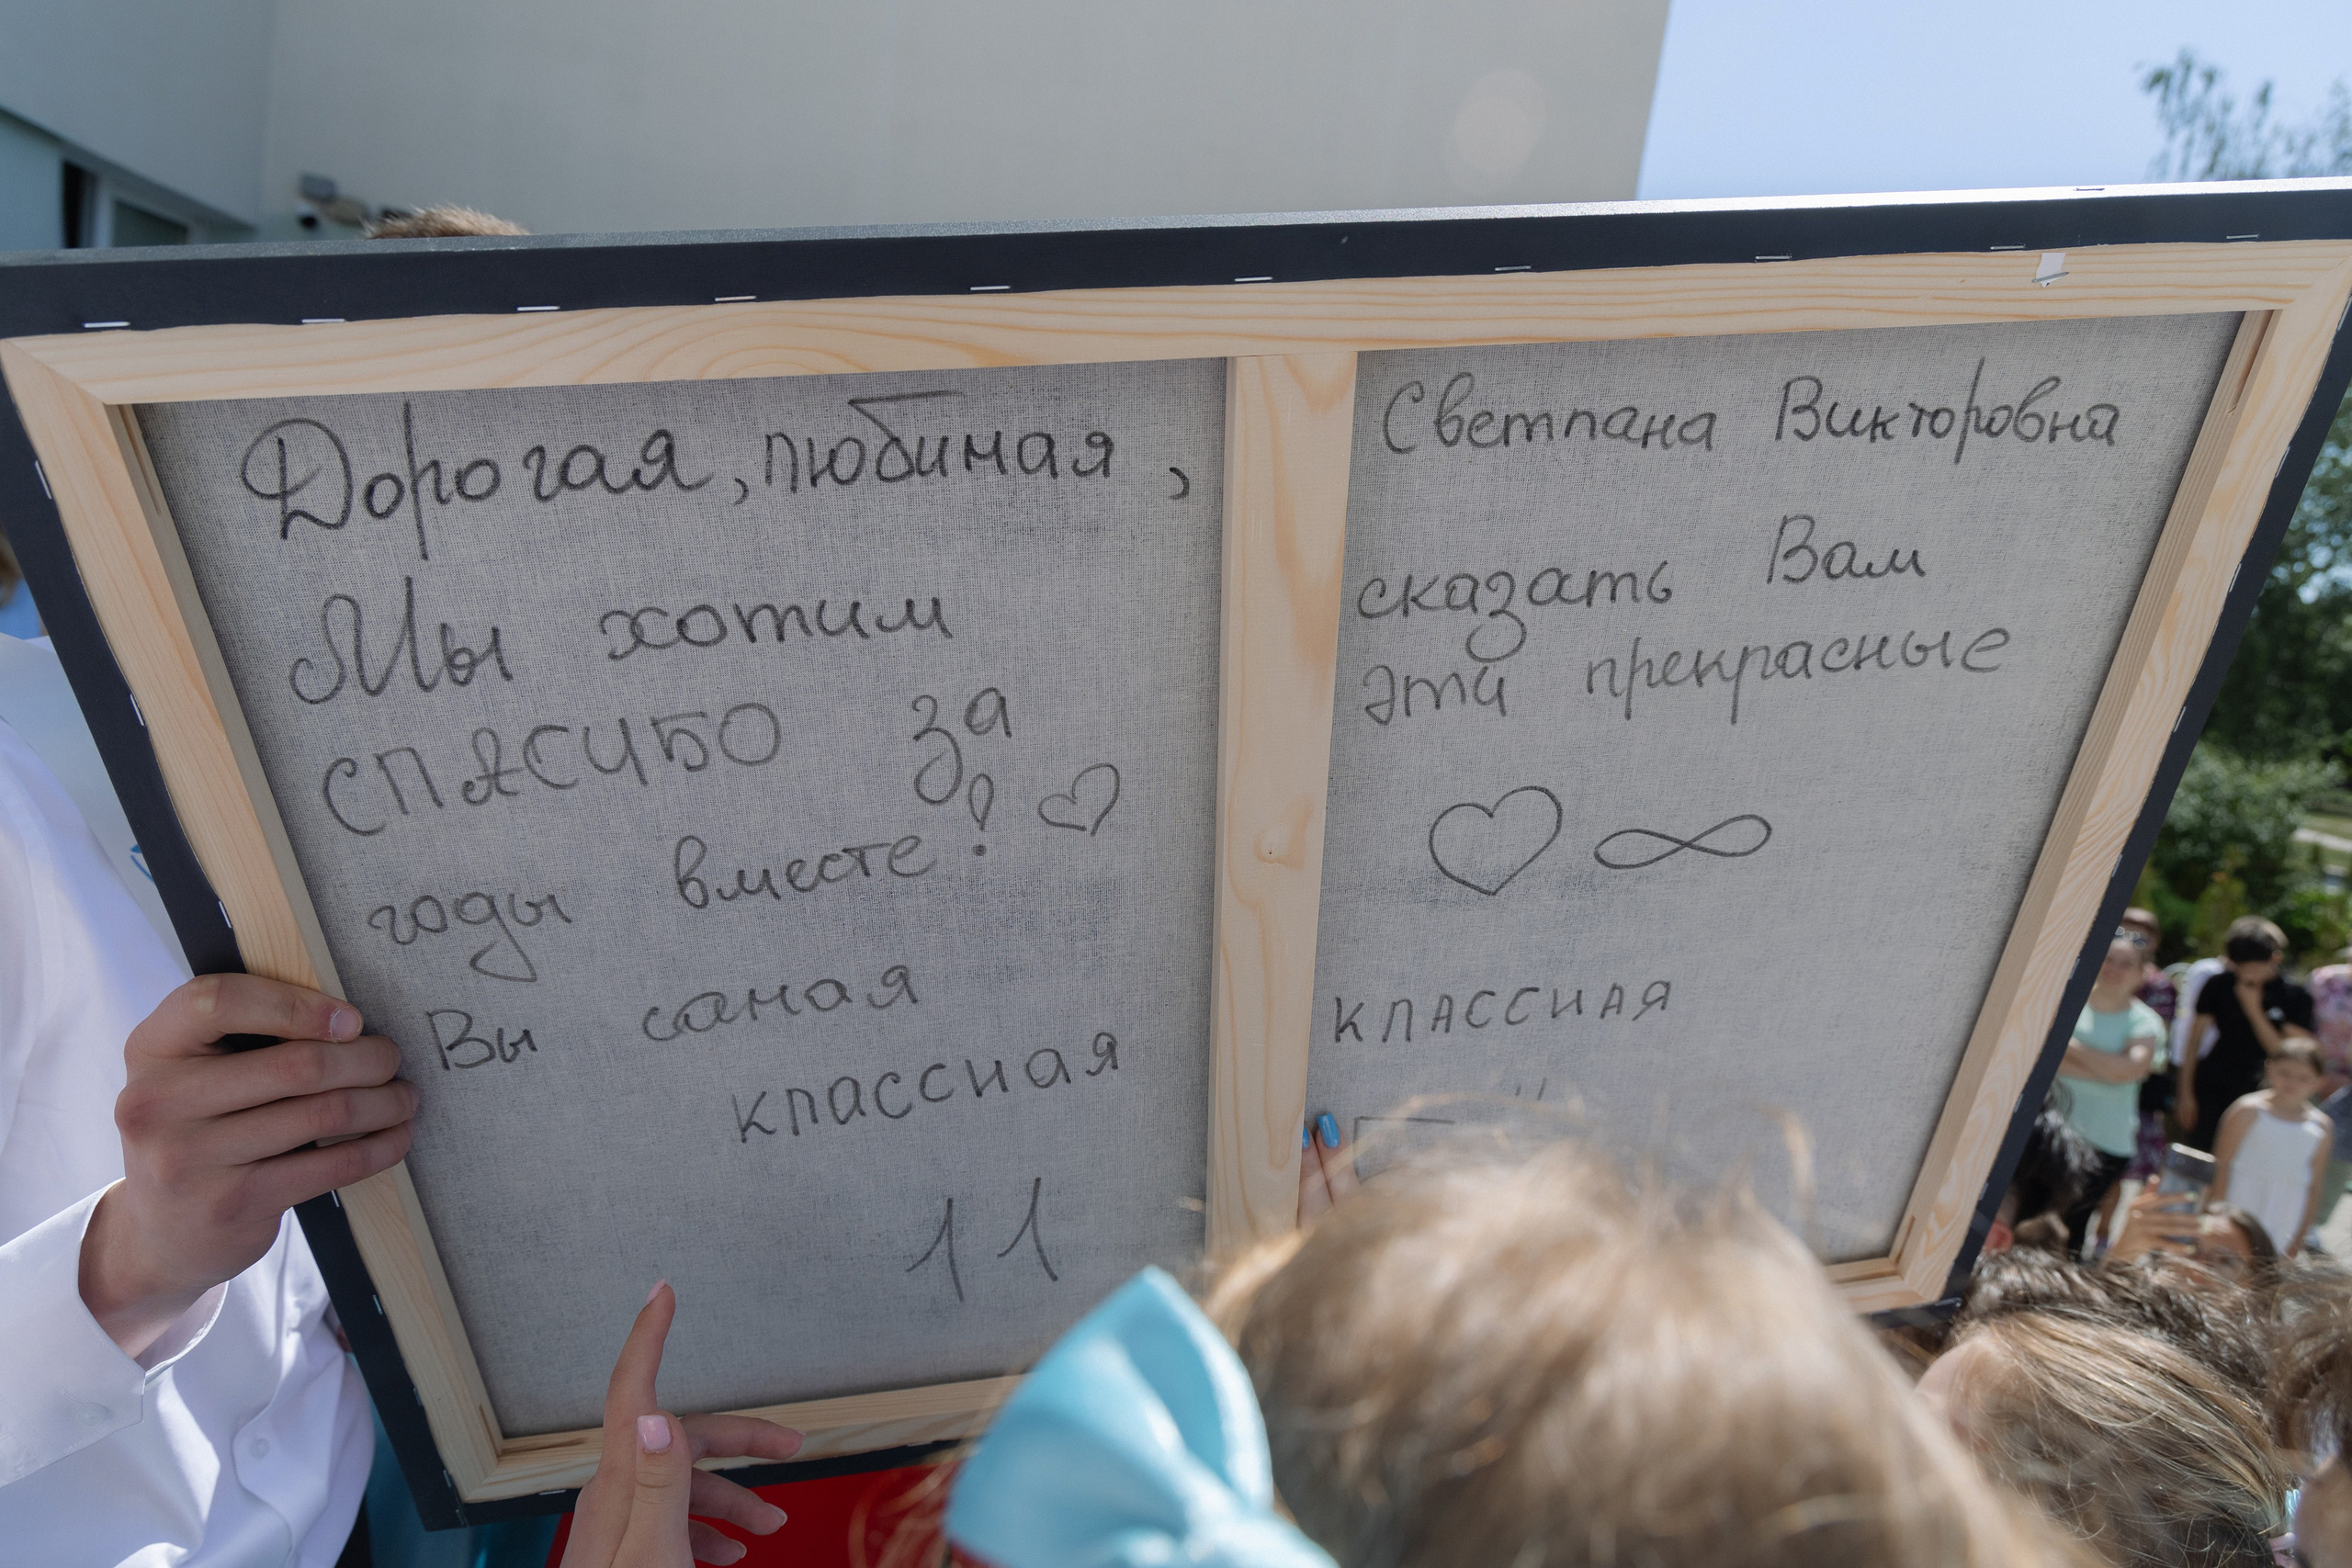 Дорогая, любимая, Светлана Викторовна
Мы хотим сказать Вам
СПАСИБО за эти прекрасные
годы вместе!
Вы самая классная
классная
11